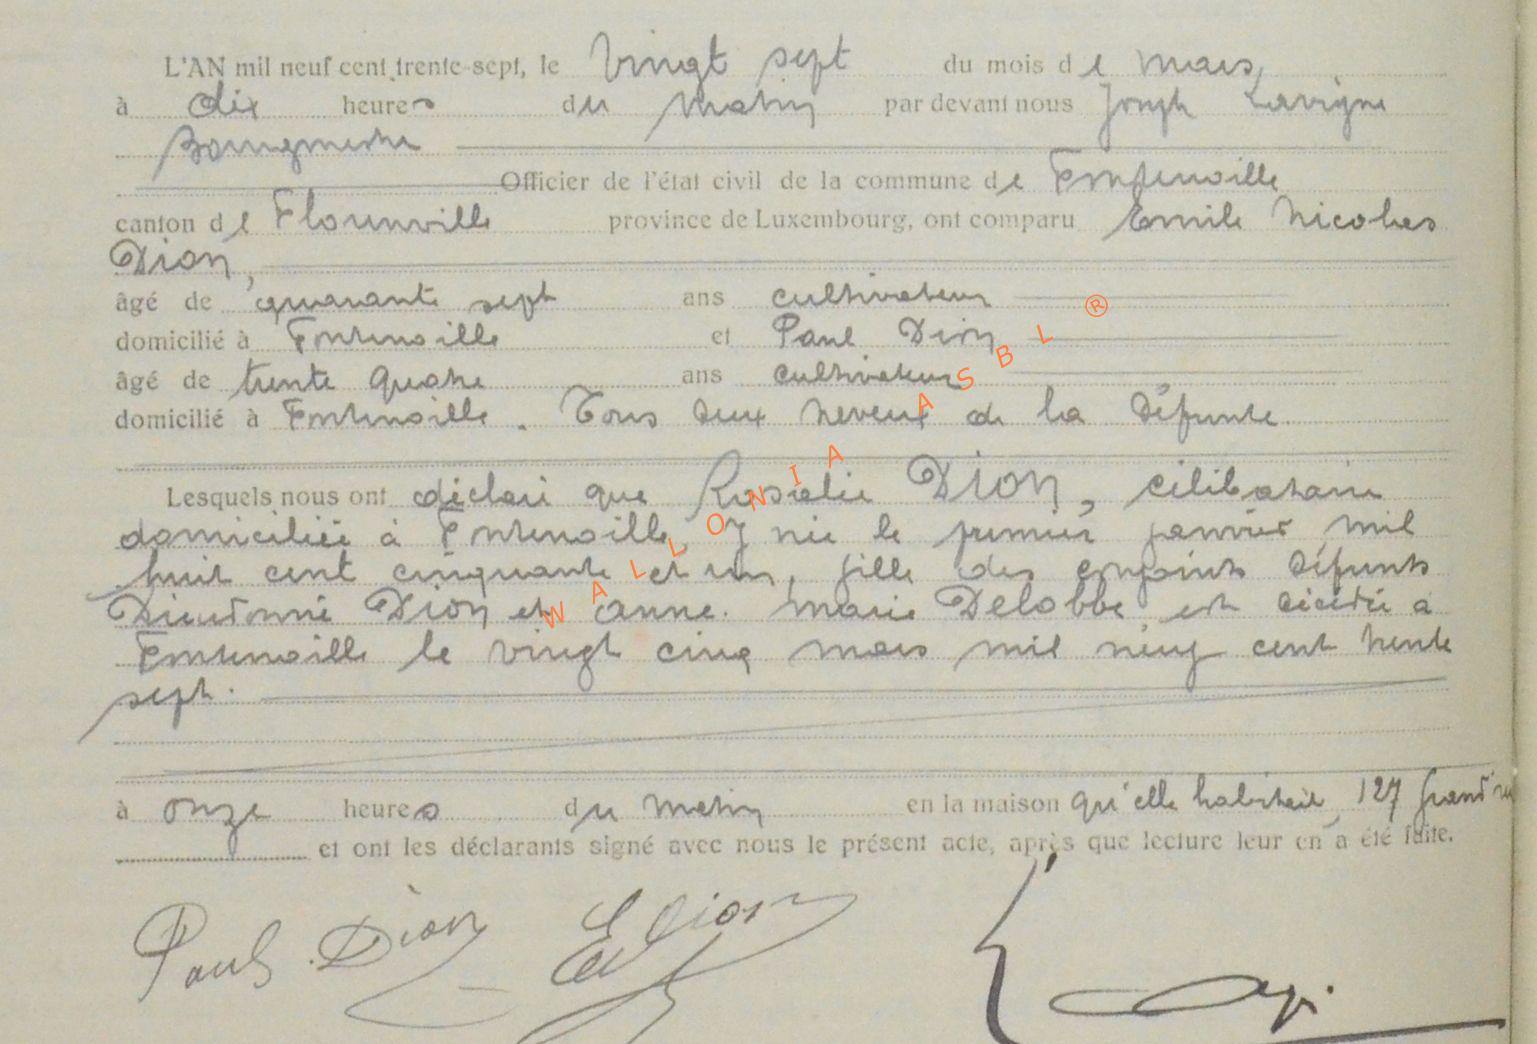 L'AN mil neuf cent trente-sept, le Vingt sept du mois de mars,
à dix heures du matin par devant nous Joseph Lavigne
Bourgmestre
Officier de l'état civil de la commune de Fontenoille
canton de Florenville province de Luxembourg, ont comparu Emile Nicolas
Dion,
âgé de quarante sept ans cultivateur
domicilié à Fontenoille et Paul Dion
âgé de trente quatre ans cultivateur
domicilié à Fontenoille. Tous deux neveux de la défunte.
Lesquels nous ont déclaré que Rosalie Dion, célibataire
domiciliée à Fontenoille, y née le premier janvier mil
huit cent cinquante et un, fille des conjoints défunts
Dieudonné Dion et Anne. Marie Delobbe est décédée à
Fontenoille le vingt cinq mars mil neuf cent trente
sept.
à onze heures du matin en la maison qu'elle habitait, 127 grand'rue
et ont les déclarants signé avec nous le présent acte, après que lecture leur en a été faite.
Paul Dion E Dion
WALLONIA ASBL ®